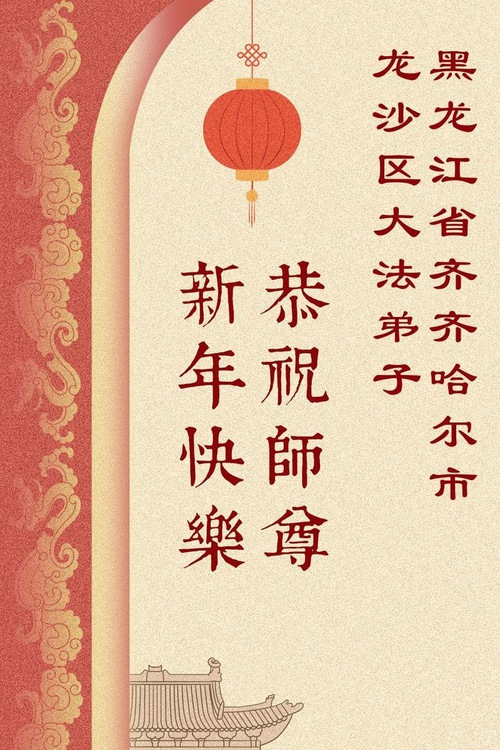 黑龙江省齐齐哈尔市
龙沙区大法弟子
恭祝師尊
新年快樂